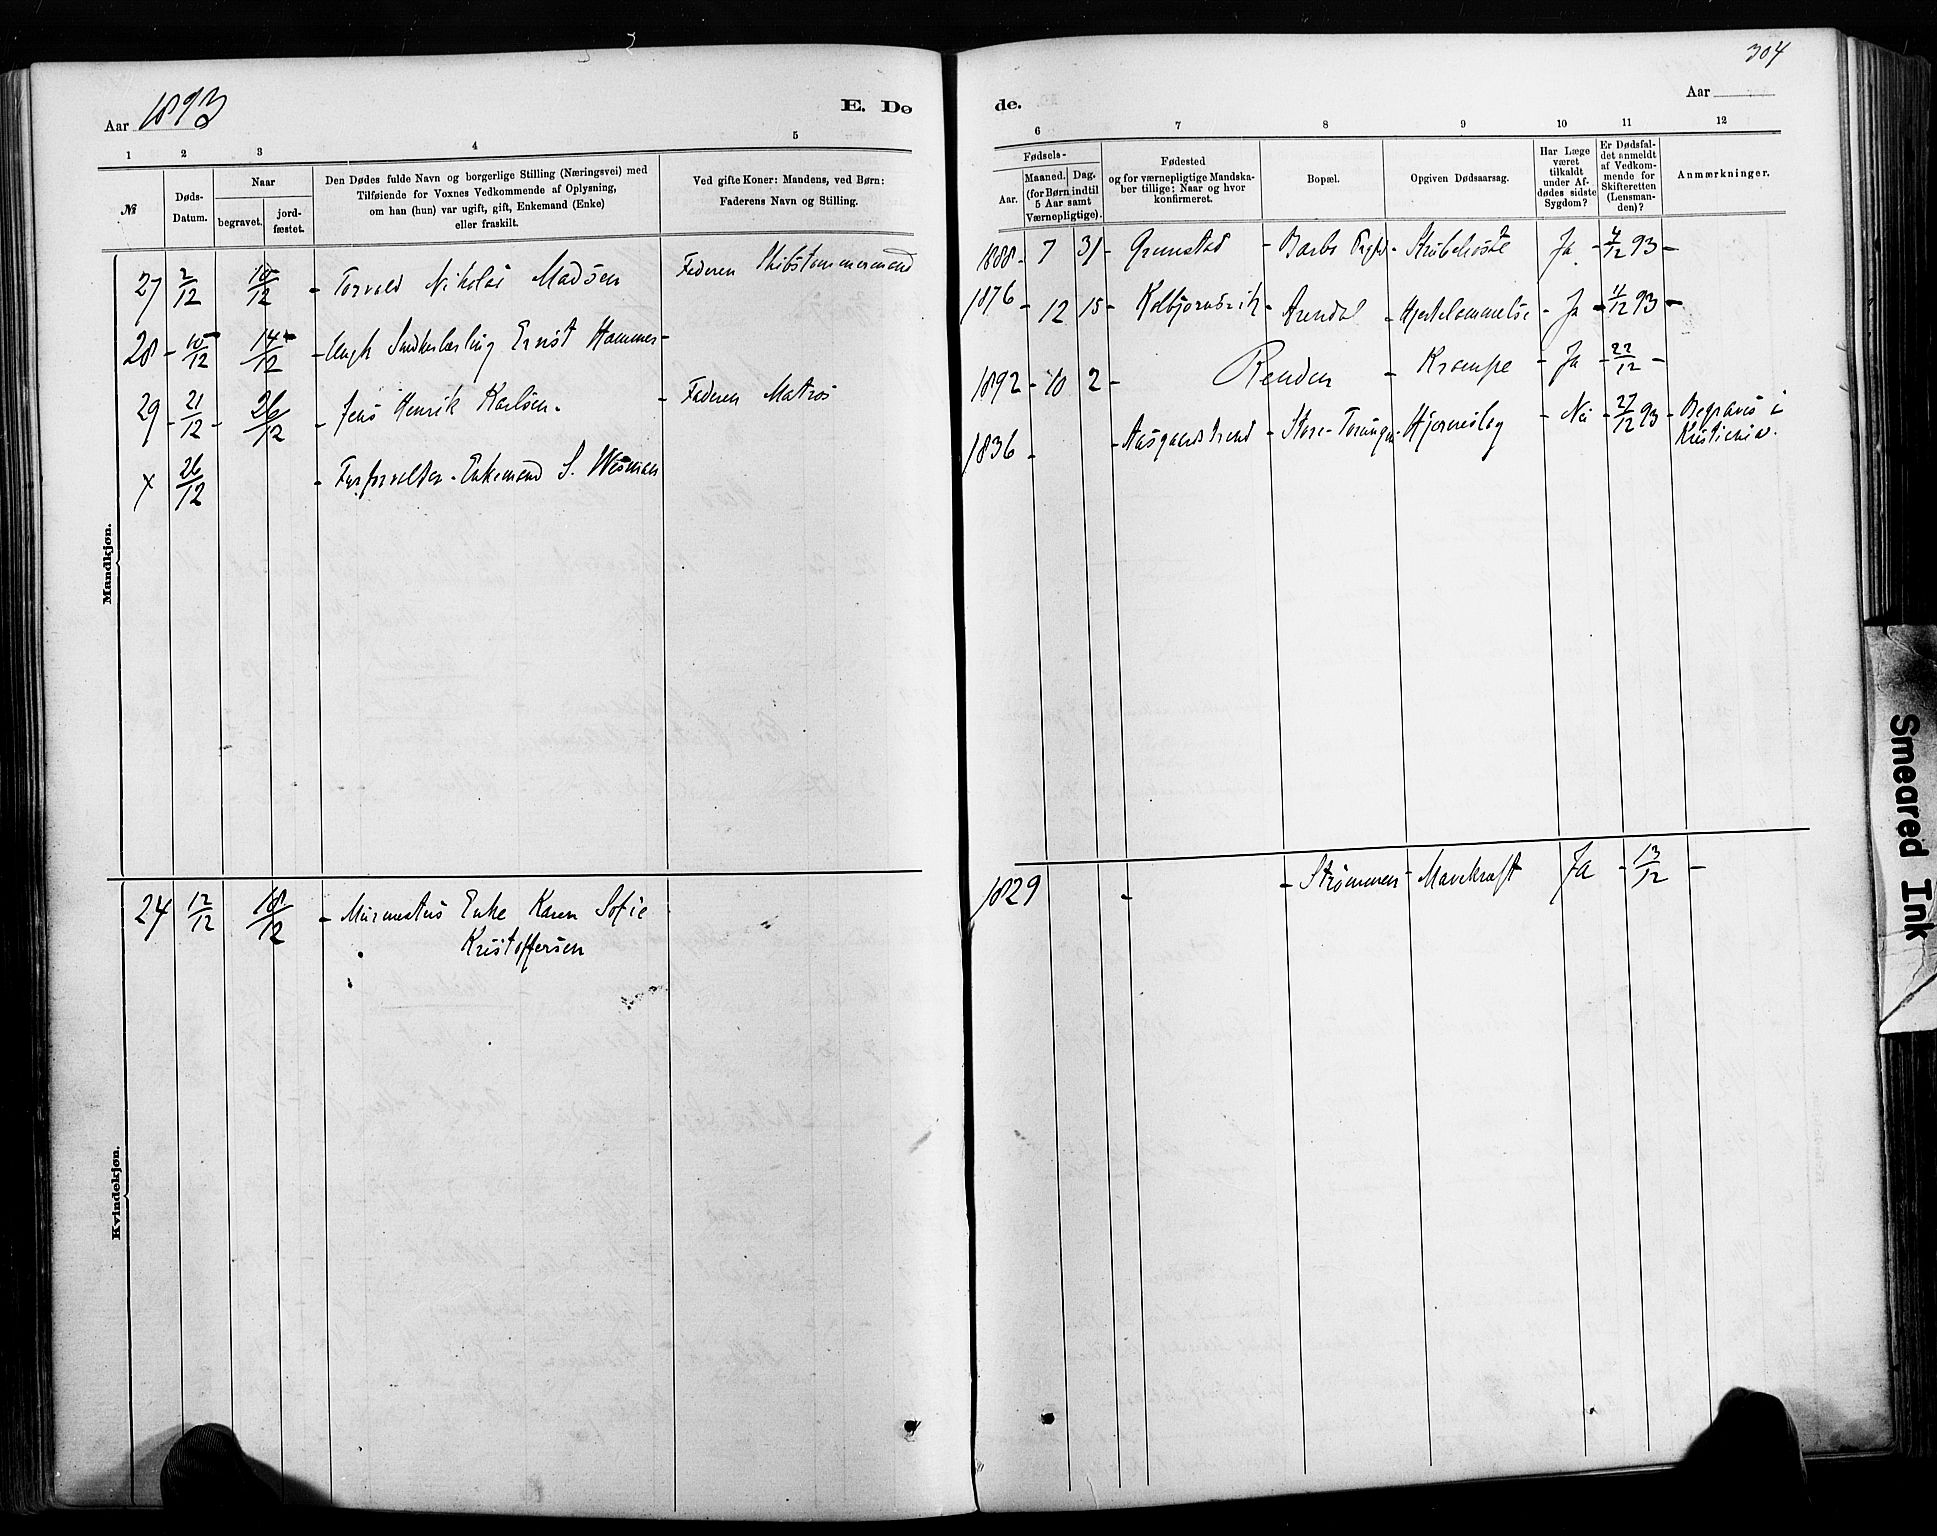 304
Aar 1893
E. Dø
de.
Aar
1 2 3 4 5
6 7 8 9 10 11 12
№
Døds-
Datum.
Naar
begravet.
jord-
fæstet.
Den Dødes fulde Navn og borgerlige Stilling (Næringsvei) med
Tilføiende for Voxnes Vedkommende af Oplysning,
om han (hun) var ugift, gift, Enkemand (Enke)
eller fraskilt.
Ved gifte Koner: Mandens, ved Børn:
Faderens Navn og Stilling.
Fødsels-
Aar.
Maaned. Dag.
(for Børn indtil
5 Aar samt
Værnepligtige).
Fødested
og for værnepligtige Mandska-
ber tillige: Naar og hvor
konfirmeret.
Bopæl.
Opgiven Dødsaarsag.
Har Læge
været
tilkaldt
under Af-
dødes sidste
Sygdom?
Er Dødsfal-
det anmeldt
af Vedkom-
mende for
Skifteretten
(Lensman-
den)?
Anmærkninger.
Mandkjøn.
27 2/12 10/12 - Torvald Nikolai Madsen Faderen Skibstømmermand 1888 - 7 31 - Grimstad - Barbo - Strubehoste Ja - 4/12 93 -
28 - 10/12 14/12 - Ernst Hammer - 1876 - 12 15 - Kolbjørnsvik - Arendal - Hjertelammelse - Ja - 11/12 93 -
29 - 21/12 - 26/12 - Jens Henrik Karlsen. - Faderen Matros 1892 - 10 2 - Renden - Krampe - Ja - 22/12 -
x 26/12 - Fyrforvalter - Enkemand S. Wesman 1836 - - Aasgaardstrand - Store-Torungen - Hjerneslag - Nei - 27/12 93 - Begraves i
Kristiania.
Kvindekjøn.
24 12/12 18/12 - Murmesters Enke Karen Sofie
Kristoffersen
1829 - - Strømmen - Mavekræft Ja - 13/12 -
Smeared Ink